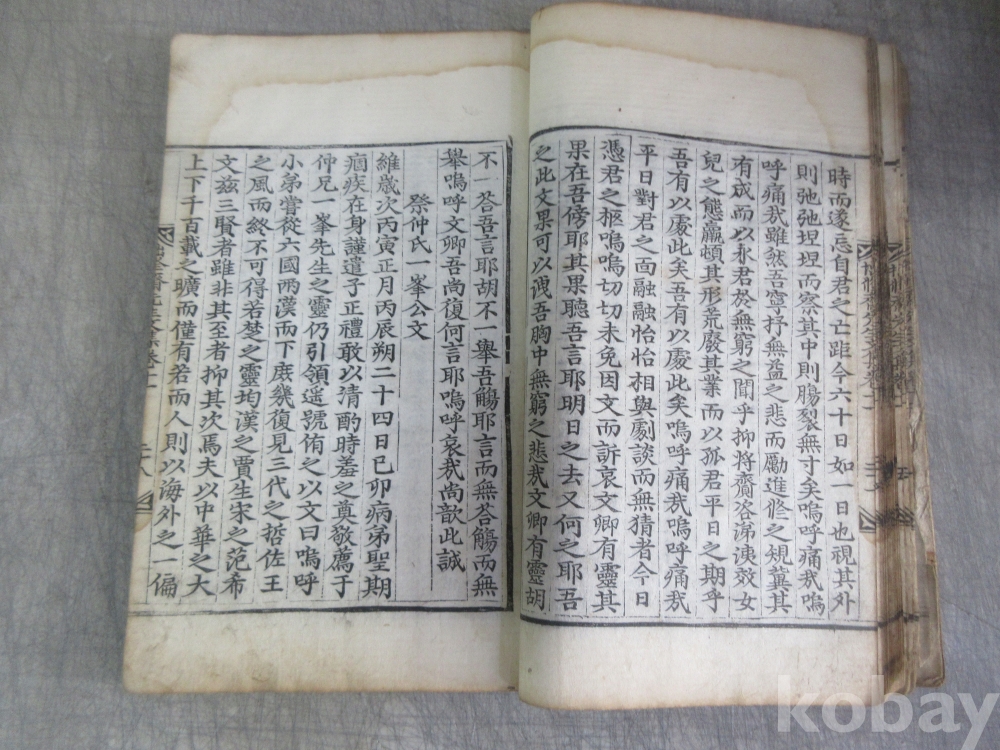 時而遂忘自君之亡距今六十日如一日也視其外
則弛弛坦坦而察其中則腸裂無寸矣嗚呼痛哉嗚
呼痛哉雖然吾寧抒無益之悲而勵進修之規冀其
有成而以永君於無窮之聞乎抑將齎咨涕洟效女
兒之態羸頓其形荒廢其業而以孤君平日之期乎
吾有以處此矣吾有以處此矣嗚呼痛哉嗚呼痛哉
平日對君之面融融怡怡相與劇談而無猜者今日
憑君之柩嗚嗚切切未免因文而訴哀文卿有靈其
果在吾傍耶其果聽吾言耶明日之去又何之耶吾
之此文果可以洩吾胸中無窮之悲哉文卿有靈胡
不一答吾言耶胡不一舉吾觴耶言而無答觴而無
舉嗚呼文卿吾尚復何言耶嗚呼哀哉尚歆此誠
祭仲氏一峯公文
維歲次丙寅正月丙辰朔二十四日己卯病弟聖期
痼疾在身謹遣子正禮敢以清酌時羞之奠敬薦于
仲兄一峯先生之靈仍引領遥號侑之以文曰嗚呼
小弟嘗從六國兩漢而下庶幾復見三代之哲佐王
之風而終不可得若楚之靈均漢之賈生宋之范希
文兹三賢者雖非其至者抑其次焉夫以中華之大
上下千百載之曠而僅有若而人則以海外之一偏
kobay